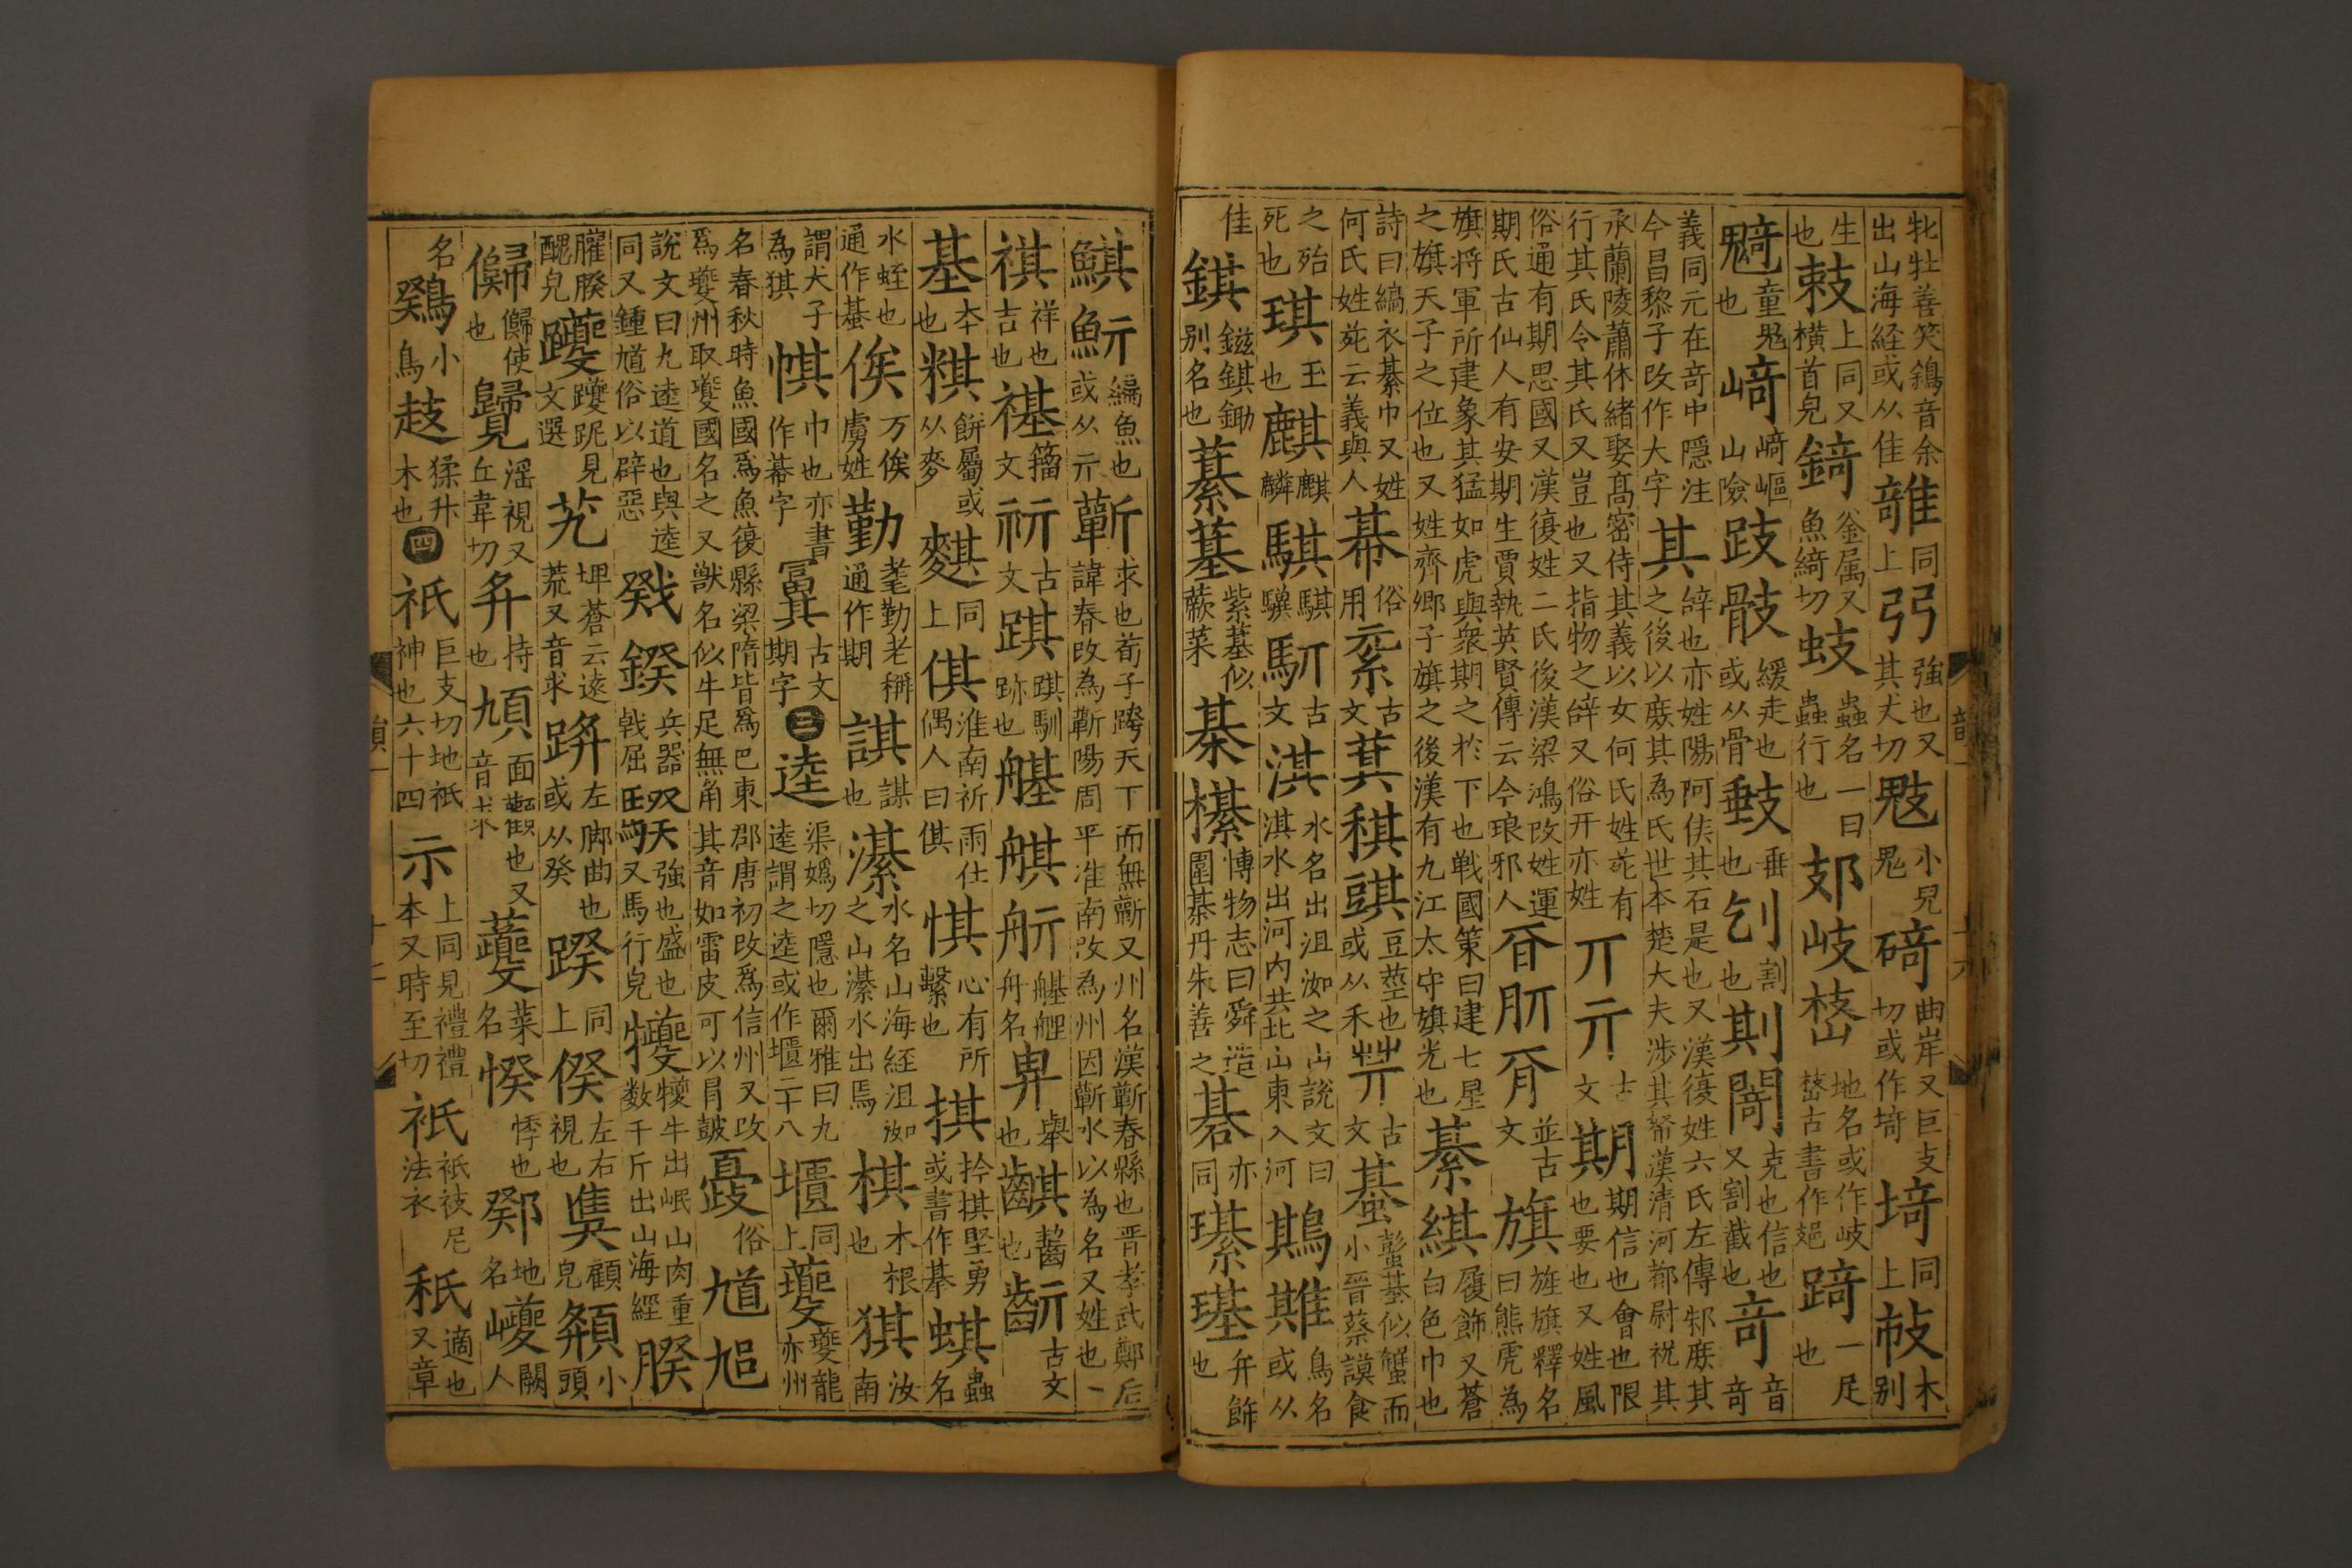 牝牡善笑鵨音余出山海経或从隹䧴同上弜強也又其犬切鬾小兒鬼碕曲岸又巨支切或作埼埼同上㩽木别
生也㩽上同又横首皃錡釜属又魚綺切蚑蟲名一曰蟲行也郂岐嵠地名或作岐嵠古書作𨙸踦一足也
䰙童鬼也崎崎嶇山險跂骹緩走也或从骨䡋垂也刉割也剘閪克也信也又割截也奇音奇
義同元在奇中隱注今昌黎子改作大字其辝也亦姓陽阿侯其石是也又漢復姓六氏左傳邾庶其之後以庶其為氏世本楚大夫涉其帑漢清河都尉祝其
承蘭陵蕭休緒娶髙密侍其義以女何氏姓苑有行其氏令其氏又豈也又指物之辝又俗开亦姓丌亓古文期期信也會也限也要也又姓風
俗通有期思國又漢復姓二氏後漢梁鴻改姓運期氏古仙人有安期生賈執英賢傳云今琅邪人𣅆肵𦙃並古文旗旌旗釋名曰熊虎為
旗将軍所建象其猛如虎與衆期之於下也戦國策曰建七星之旗天子之位也又姓齊鄉子旗之後漢有九江太守旗光也綦綨履飾又蒼白色巾也
詩曰縞衣綦巾又姓何氏姓苑云義與人帺俗用𥿄古文萁稘䜺豆莖也或从禾䒶古文蟇蟛蟇似蟹而小晉蔡謨食
之殆死也琪玉也麒麒麟騏騏驥馯古文淇水名出沮洳之山說文曰淇水出河内共北山東入河鶀䳢鳥名或从
隹錤鎡錤鋤别名也藄䓽紫䓽似蕨菜棊櫀博物志曰舜造圍棊丹朱善之碁亦同璂璂弁飾也
鯕魭鯿魚也或从亓蘄求也荀子跨天下而無蘄又州名漢蘄春縣也晋孝武鄭后諱春改為蘄陽周平淮南改為州因蘄水以為名又姓也
祺祥也吉也禥籀文祈古文踑踑馴跡也艍艍䑠舟名畁舉也䶞齧也齗古文
基本也粸餅屬或从麥䴢同上倛淮南祈雨仕偶人曰倛惎心有所繫也掑拎掑堅勇或書作㨒蜞蟲名
水蛭也通作蟇俟万俟虜姓勤耄勤老稱通作期諆謀也濝水名山海経沮洳之山濝水出焉棋木根也猉汝南
謂犬子為猉帺巾也亦書作帺字𡨢古文期字三逵渠嬀切隱也爾雅曰九逵謂之逵或作馗二十八馗同上夔夔龍亦州
名春秋時魚國為魚復縣梁隋皆為巴東郡唐初改為信州又改為夔州取夔國名之又獣名似牛足無角其音如雷皮可以冒皷夔俗馗𨓱
說文曰九逵道也與逵同又鍾馗俗以辟惡戣鍨兵器戟屈騤強也盛也又馬行皃犪犪牛出岷山肉重数千斤出山海經
臞䐚醜皃躨躨跜見文選艽坤蒼云遠荒又音求踤左脚曲也或从癸蹞同上𠊾左右視也𨾴顧皃頯小頭
㱕㱕使也𧢦淫視又丘韋切弁持也頄面顴也又音求虁菜名悸悸也鄈地名巙人闕
名鷄小鳥䞚猱升木也四祇巨支切地祇神也六十四示上同見禮禮本又時至切祗祗衼尼法衣秖適也又章